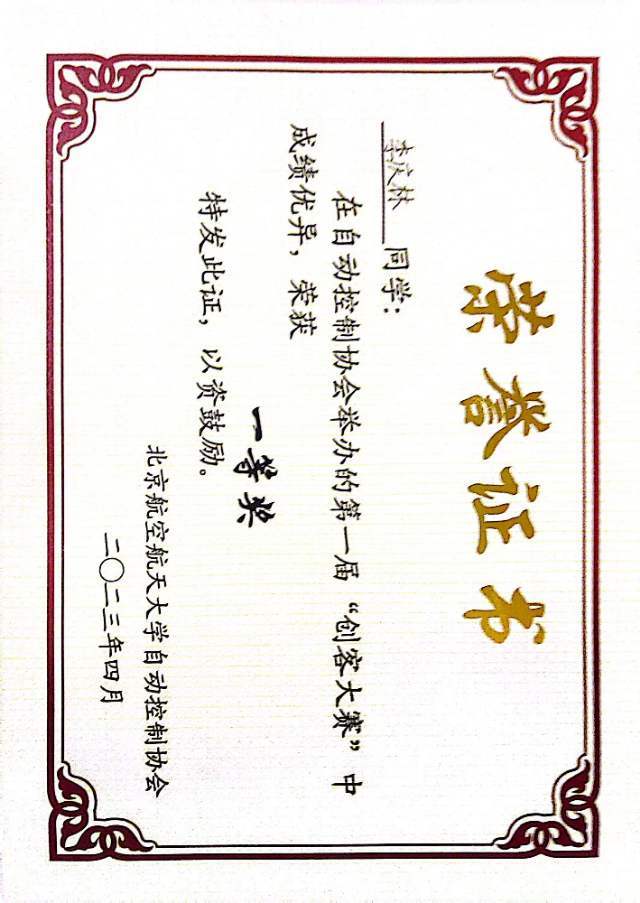 荣誉证书
李庆林 同学：
在自动控制协会举办的第一届“创客大赛”中
成绩优异，荣获
一等奖
特发此证，以资鼓励。
北京航空航天大学自动控制协会
二〇二三年四月